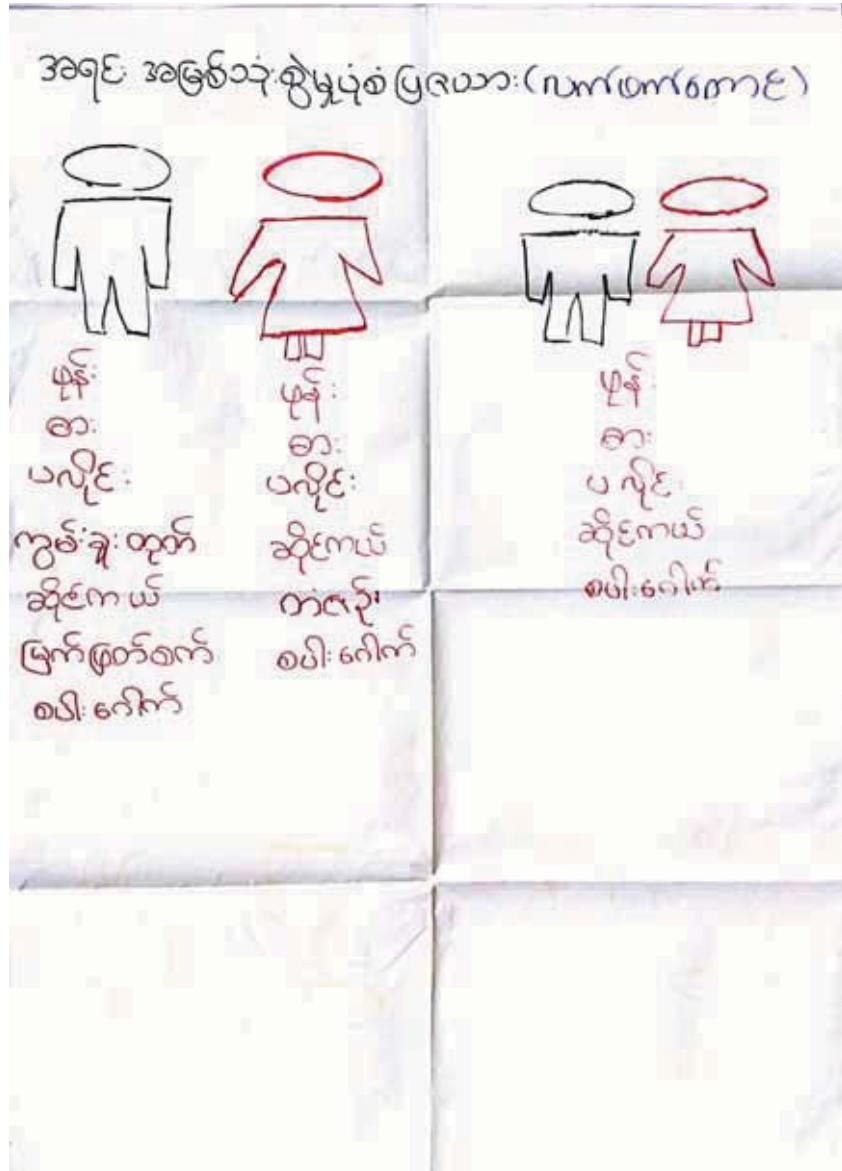 အရင်းအမြစ်သုံးစွဲမှုပုံစံပြဇယား(လက်ဖက်တောင်)
ဖုန်း
ဓား
ပလိုင်း
ကွမ်းခူးထုတ်
ဆိုင်ကယ်
မြက်ဖြတ်စက်
စပါးဂေါက်
ဖုန်း
ဓား
ပလိုင်း
ဆိုင်ကယ်
တံစဉ်
စပါးဂေါက်
ဖုန်း
ဓား
ပလိုင်း
ဆိုင်ကယ်
စပါးဂေါက်